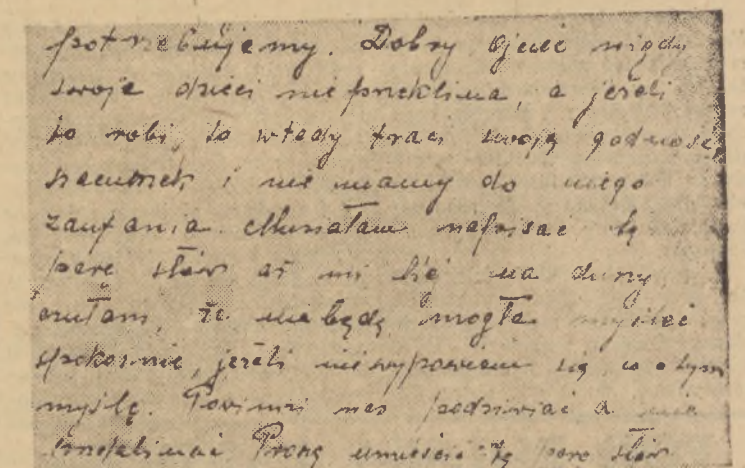 potrzebujemy. Dobry ojciec nigdy
swoje dzieci nieprzeklina, a jeżeli
to robi, to wtedy traci swoją godność,
szacunek i nie mamy do niego
zaufania. Musiałam napisać tę
parę słów aż mi lżej na duszy
czułam, że nie będę mogła myśleć
spokojnie, jeżeli niewypowiem się co o tym
myślę. Powinni nas podziwiać a nie
przeklinać Proszę umieścić tę parę słów